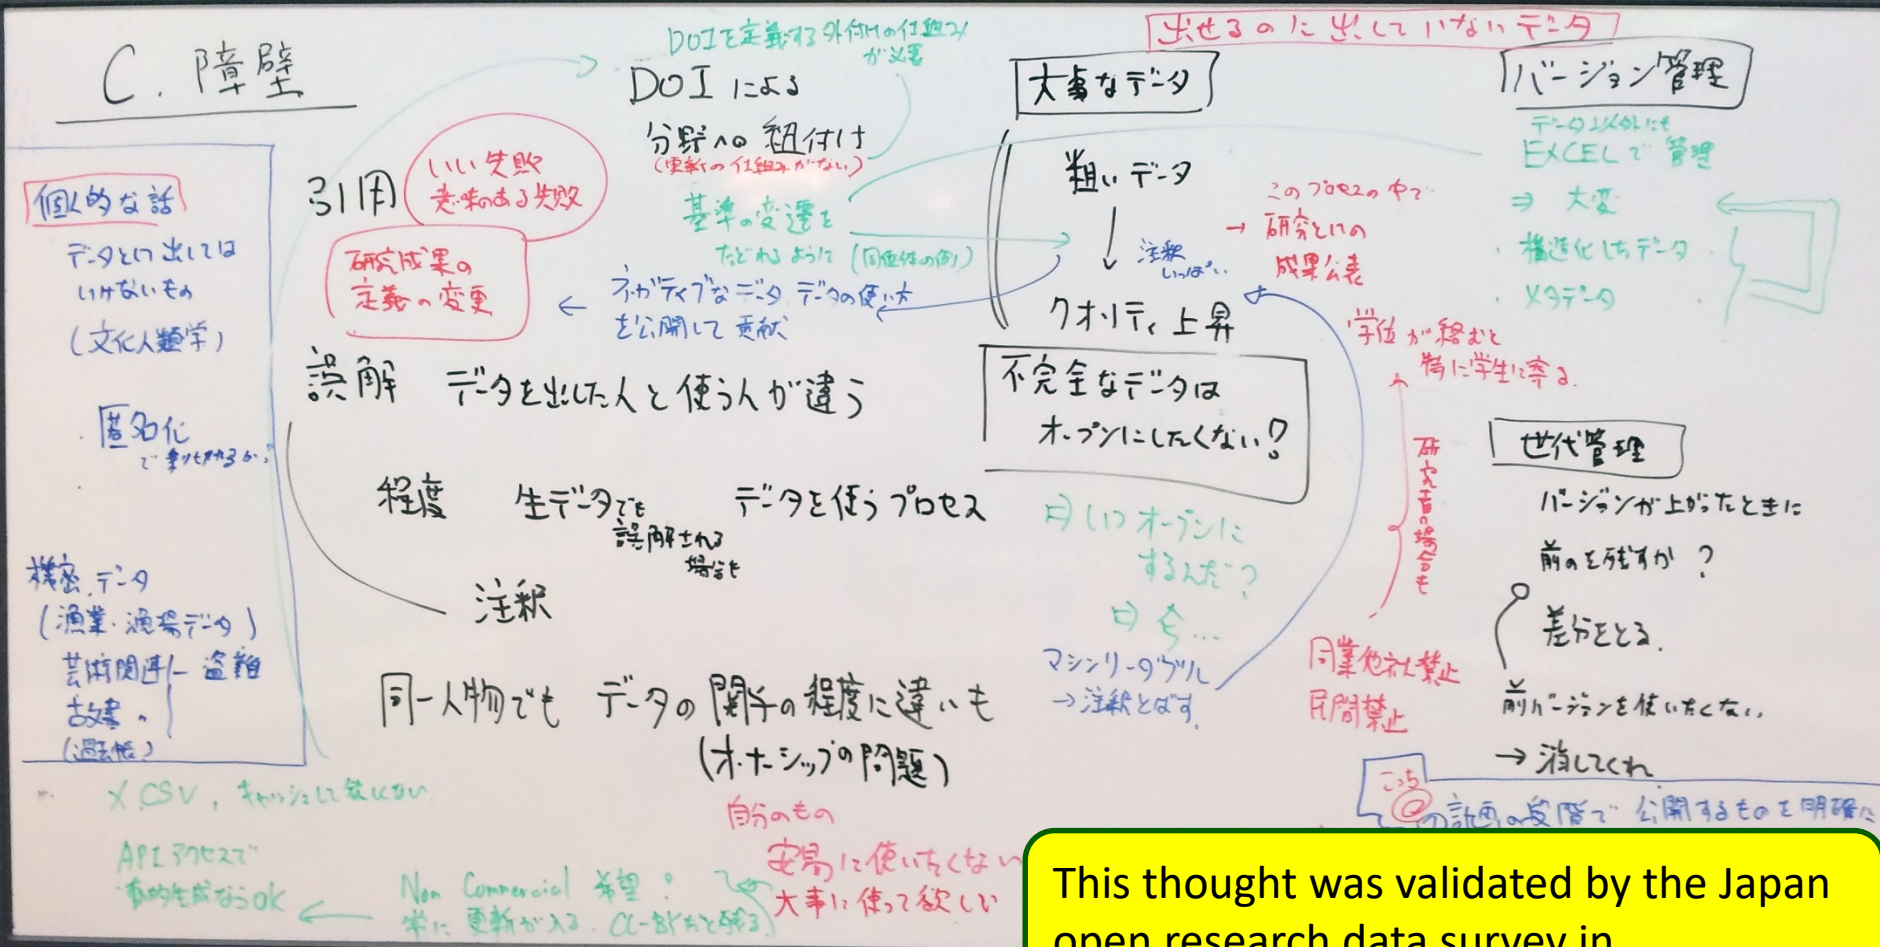 C. 障壁
個人的な話
データとして出しては
いけないもの
(文化人類学)
匿名化
機密データ
(漁業・漁場データ)
芸術関連 盗難
古文書
(過去帳)
引用
いい失敗
意味のある失敗
研究成果の
定義の変更
DOIを定義する外付けの仕組み
が必要
DOIによる
分野への紐付け
(更新の仕組みがない)
基準の変遷を
たどれるように (同位体の例)
ネガティブなデータ データの使い方
を公開して貢献
誤解 データを出した人と使う人が違う
程度 生データでも データを使うプロセス
誤解される
場合も
注釈
同一人物でも データの関与の程度に違いも
(オーナーシップの問題)
自分のもの
安易に使いたくない
大事に使って欲しい
X CSV, キャッシュして欲しくない
APIアクセスで
動的生成ならOK
Non Commercial 希望?
常に更新が入る. CC-BYだと残る
出せるのに出していないデータ
大事なデータ
粗いデータ
注釈
いっぱい
クオリティ上昇
このプロセスの中で
→ 研究としての
成果公表
不完全なデータは
オープンにしたくない?
⇒ いつオープンに
するんだ?
⇒ 今...
マシンリーダブル
→ 注釈とばす
学位が絡むと
特に学生に寄る.
研究者の場合も
同業他社禁止
民間禁止
バージョン管理
データ以外にも
EXCELで管理
⇒ 大変
・構造化したデータ
・メタデータ
世代管理
バージョンが上がったときに
前のを残すか?
差分をとる.
前バージョンを使いたくない.
→ 消してくれ
こっち
の計画の段階で 公開するものを明確に
This thought was validated by the Japan
open research data survey in